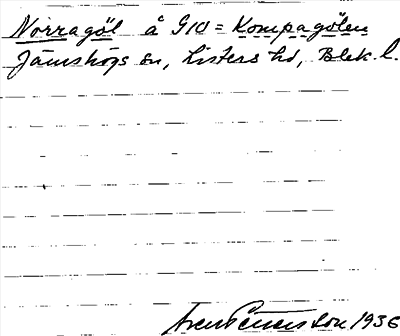 Norragöl å GK = Kompagölen
Jämshögs sn, Listers hd, Blek. l.
Sven Benson 1936